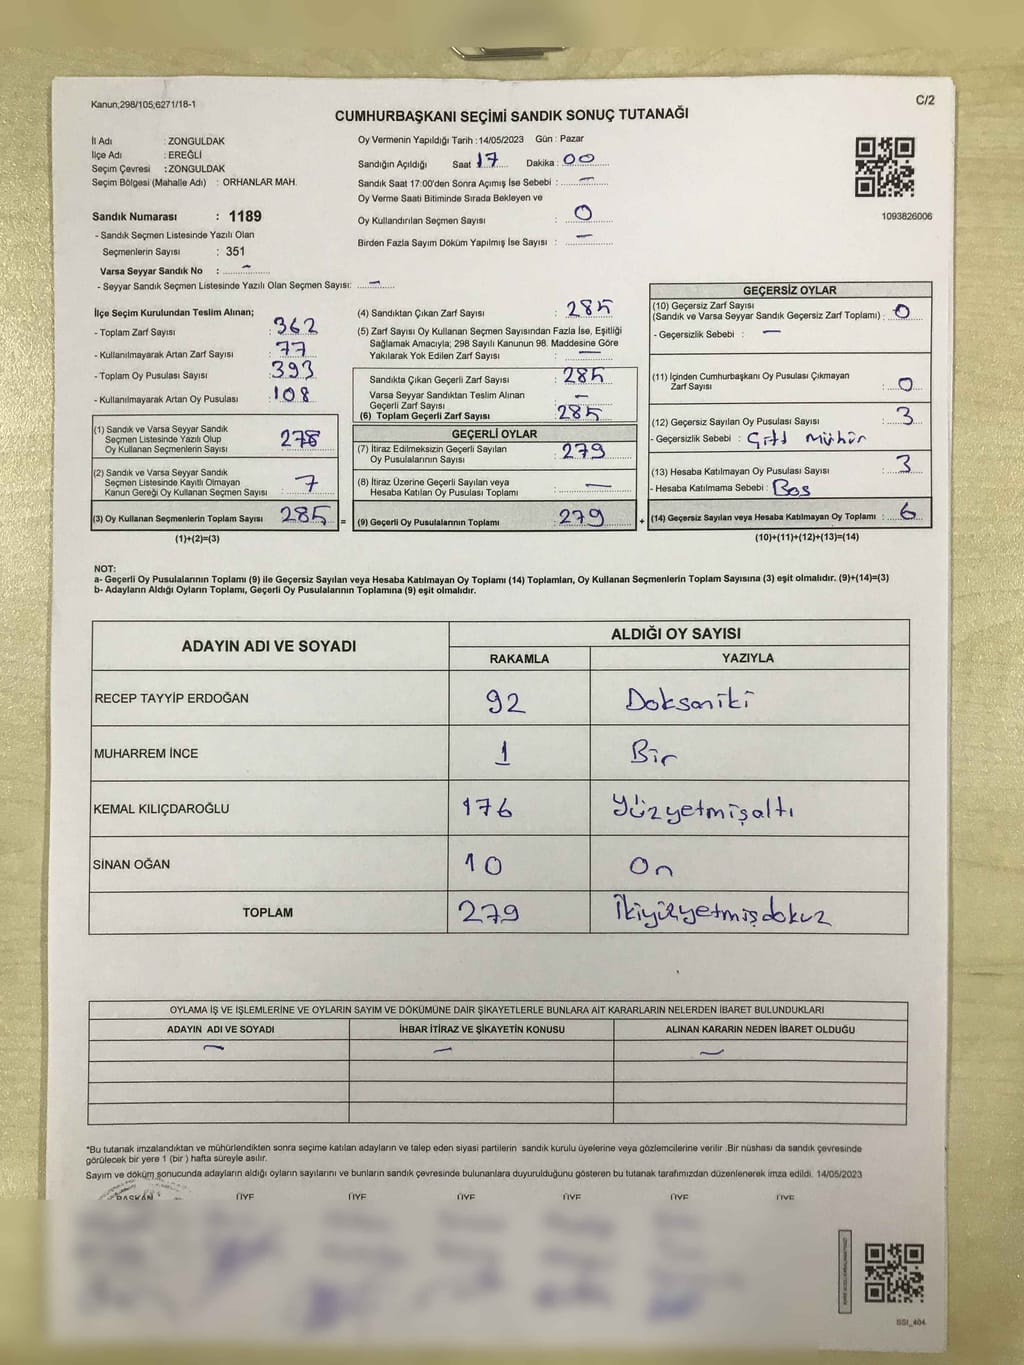 Kanun;298/105;6271/18-1
C/2
CUMHURBAŞKANI SEÇİMİ SANDIK SONUÇ TUTANAĞI
İl Adı : ZONGULDAK
İlçe Adı : EREĞLİ
Seçim Çevresi : ZONGULDAK
Seçim Bölgesi (Mahalle Adı) : ORHANLAR MAH.
Oy Vermenin Yapıldığı Tarih : 14/05/2023 Gün : Pazar
Sandığın Açıldığı Saat 17 Dakika : 00
Sandık Saat 17:00'den Sonra Açımış İse Sebebi : —
Oy Verme Saati Bitiminde Sırada Bekleyen ve
Oy Kullandırılan Seçmen Sayısı : 0
Birden Fazla Sayım Döküm Yapılmış İse Sayısı : —
1093826006
Sandık Numarası : 1189
- Sandık Seçmen Listesinde Yazılı Olan
Seçmenlerin Sayısı : 351
Varsa Seyyar Sandık No : —
- Seyyar Sandık Seçmen Listesinde Yazılı Olan Seçmen Sayısı: —
İlçe Seçim Kurulundan Teslim Alınan;
- Toplam Zarf Sayısı : 362
- Kullanılmayarak Artan Zarf Sayısı : 77
- Toplam Oy Pusulası Sayısı : 393
- Kullanılmayarak Artan Oy Pusulası : 108
(1) Sandık ve Varsa Seyyar Sandık
Seçmen Listesinde Yazılı Olup
Oy Kullanan Seçmenlerin Sayısı : 278
(2) Sandık ve Varsa Seyyar Sandık
Seçmen Listesinde Kayıtlı Olmayan
Kanun Gereği Oy Kullanan Seçmen Sayısı : 7
(3) Oy Kullanan Seçmenlerin Toplam Sayısı : 285 =
(1)+(2)=(3)
(4) Sandıktan Çıkan Zarf Sayısı : 285
(5) Zarf Sayısı Oy Kullanan Seçmen Sayısından Fazla İse, Eşitliği
Sağlamak Amacıyla; 298 Sayılı Kanunun 98. Maddesine Göre
Yakılarak Yok Edilen Zarf Sayısı : —
Sandıkta Çıkan Geçerli Zarf Sayısı : 285
Varsa Seyyar Sandıktan Teslim Alınan
Geçerli Zarf Sayısı : —
(6) Toplam Geçerli Zarf Sayısı : 285
GEÇERLİ OYLAR
(7) İtiraz Edilmeksizin Geçerli Sayılan
Oy Pusulalarının Sayısı : 279
(8) İtiraz Üzerine Geçerli Sayılan veya
Hesaba Katılan Oy Pusulası Toplamı : —
(9) Geçerli Oy Pusulalarının Toplamı : 279 +
GEÇERSİZ OYLAR
(10) Geçersiz Zarf Sayısı
(Sandık ve Varsa Seyyar Sandık Geçersiz Zarf Toplamı) : 0
- Geçersizlik Sebebi : —
(11) İçinden Cumhurbaşkanı Oy Pusulası Çıkmayan
Zarf Sayısı : 0
(12) Geçersiz Sayılan Oy Pusulası Sayısı : 3
- Geçersizlik Sebebi : Çift Mühür
(13) Hesaba Katılmayan Oy Pusulası Sayısı : 3
- Hesaba Katılmama Sebebi : Boş
(14) Geçersiz Sayılan veya Hesaba Katılmayan Oy Toplamı : 6
(10)+(11)+(12)+(13)=(14)
NOT:
a- Geçerli Oy Pusulalarının Toplamı (9) ile Geçersiz Sayılan veya Hesaba Katılmayan Oy Toplamı (14) Toplamları, Oy Kullanan Seçmenlerin Toplam Sayısına (3) eşit olmalıdır. (9)+(14)=(3)
b- Adayların Aldığı Oyların Toplamı, Geçerli Oy Pusulalarının Toplamına (9) eşit olmalıdır.
ADAYIN ADI VE SOYADI
ALDIĞI OY SAYISI
RAKAMLA YAZIYLA
RECEP TAYYİP ERDOĞAN 92 Doksaniki
MUHARREM İNCE 1 Bir
KEMAL KILIÇDAROĞLU 176 Yüzyetmişaltı
SİNAN OĞAN 10 On
TOPLAM 279 İkiyüzyetmişdokuz
OYLAMA İŞ VE İŞLEMLERİNE VE OYLARIN SAYIM VE DÖKÜMÜNE DAİR ŞİKAYETLERLE BUNLARA AİT KARARLARIN NELERDEN İBARET BULUNDUKLARI
ADAYIN ADI VE SOYADI İHBAR İTİRAZ VE ŞİKAYETİN KONUSU ALINAN KARARIN NEDEN İBARET OLDUĞU
— — —
*Bu tutanak imzalandıktan ve mühürlendikten sonra seçime katılan adayların ve talep eden siyasi partilerin sandık kurulu üyelerine veya gözlemcilerine verilir .Bir nüshası da sandık çevresinde
görülecek bir yere 1 (bir ) hafta süreyle asılır.
Sayım ve döküm sonucunda adayların aldığı oyların sayılarını ve bunların sandık çevresinde bulunanlara duyurulduğunu gösteren bu tutanak tarafımızdan düzenlenerek imza edildi. 14/05/2023
BAŞKAN ÜYE ÜYE ÜYE ÜYE ÜYE ÜYE
SSI_404